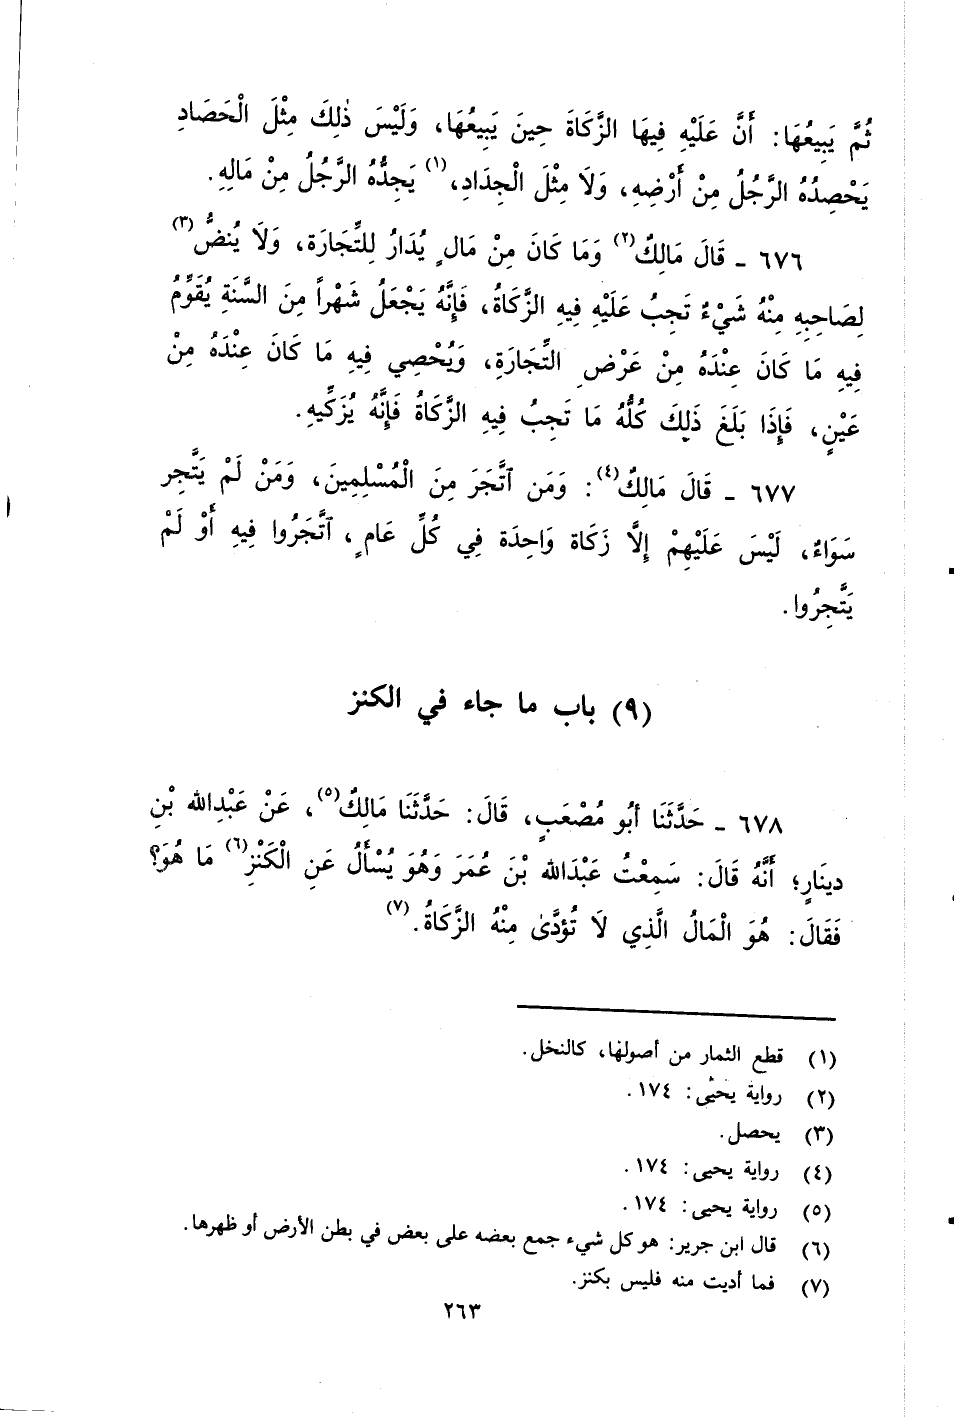 ثُمَّ يَبِيعُهَا: أَنَّ عَلَيْهِ فِيهَا الزَّكَاةَ حِينَ يَبِيعُهَا، وَلَيْسَ ذٰلِكَ مِثْلَ الْحَصَادِ
يَحْصِدُهُ الرَّجُلُ مِنْ أَرْضِهِ، وَلَا مِثْلَ الْجِدَادِ،(١) يَجِدُّهُ الرَّجُلُ مِنْ مَالِهِ.
٦٧٦ - قَالَ مَالِكٌ(٢) وَمَا كَانَ مِنْ مَالٍ يُدَارُ لِلتِّجَارَة، وَلَا يُنضُّ(٣)
لِصَاحِبِهِ مِنْهُ شَيْءٌ تَجِبُ عَلَيْهِ فِيهِ الزَّكَاةُ، فَإِنَّهُ يَجْعَلُ شَهْراً مِنَ السَّنَةِ يُقَوِّمُ
فِيهِ مَا كَانَ عِنْدَهُ مِنْ عَرْضِ التِّجَارَةِ، وَيُحْصِي فِيهِ مَا كَانَ عِنْدَهُ مِنْ
عَيْنٍ، فَإِذَا بَلَغَ ذَلِكَ كُلُّهُ مَا تَجِبُ فِيهِ الزَّكَاةُ فَإِنَّهُ يُزَكِّيهِ.
٦٧٧ - قَالَ مَالِكٌ(٤): وَمَن ٱتَّجَرَ مِنَ الْمُسْلِمِينَ، وَمَنْ لَمْ يَتَّجِر
سَوَاءٌ، لَيْسَ عَلَيْهِمْ إِلَّا زَكَاة وَاحِدَة فِي كُلِّ عَامٍ، ٱتَّجَرُوا فِيهِ أَوْ لَمْ
يَتَّجِرُوا.
(٩) باب ما جاء في الكنز
٦٧٨ - حَدَّثَنَا أبُو مُصْعَبٍ، قَالَ: حَدَّثَنَا مَالِكٌ(٥)، عَنْ عَبْدِالله بْنِ
دينَارٍ؛ أَنَّهُ قَالَ: سَمِعْتُ عَبْدَالله بْنَ عُمَرَ وَهُوَ يُسْأَلُ عَنِ الْكَنْزِ(٦) مَا هُوَ؟
فَقَالَ: هُوَ الْمَالُ الَّذِي لَا تُؤدَّىٰ مِنْهُ الزَّكَاةُ.(٧)
(١) قطع الثمار من أصولها، كالنخل.
(٢) رواية يحيى: ١٧٤.
(٣) يحصل.
(٤) رواية يحيى: ١٧٤.
(٥) رواية يحيى: ١٧٤.
(٦) قال ابن جرير: هو كل شيء جمع بعضه على بعض في بطن الأرض أو ظهرها.
(٧) فما أديت منه فليس بكنز.
٢٦٣